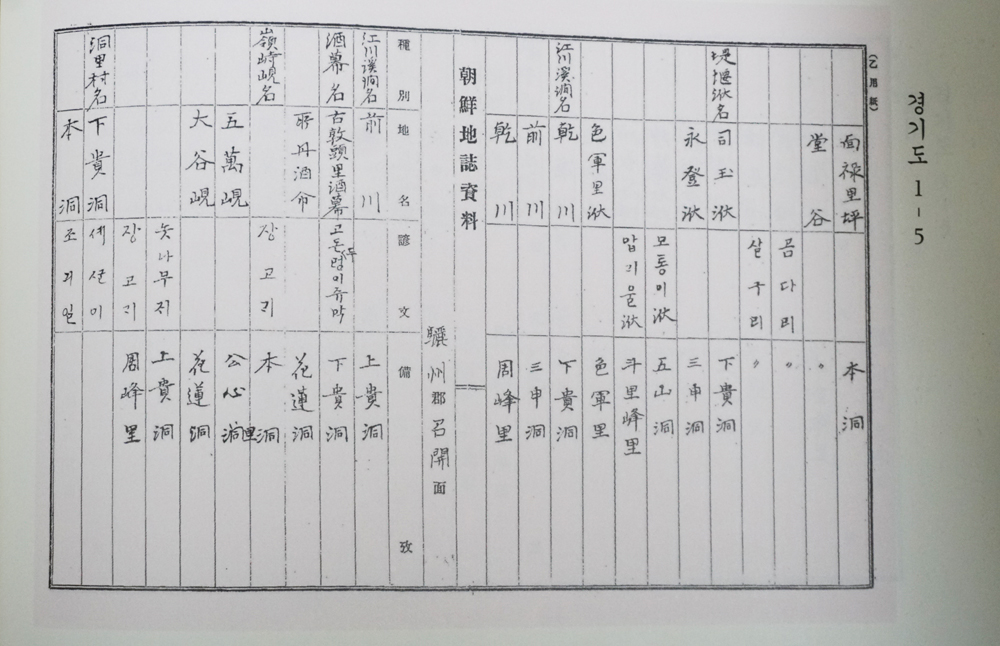 경기도 1-5
(乙用紙)
面祿里坪 本洞
堂谷 〃
곰다리 〃
살구리 〃
堤堰洑名 司玉洑 下貴洞
永登洑 三申洞
모통이洑 五山洞
압리울洑 斗里峰里
色軍里洑 色軍里
江川溪澗名 乾川 下貴洞
前川 三申洞
乾川 周峰里
朝鮮地誌資料
驪州郡召開面
種別 地名 諺文 備攷
江川溪澗名 前川 上貴洞
酒幕名 古敦頭里酒幕 고돈두렁이쥬막 下貴洞
酒幕 花蓮洞
嶺峙峴名 장고리 本洞
五萬峴 公心洞里
大谷峴 花蓮洞
놋나무지 上貴洞
장고리 周峰里
洞里村名 下貴洞
本洞